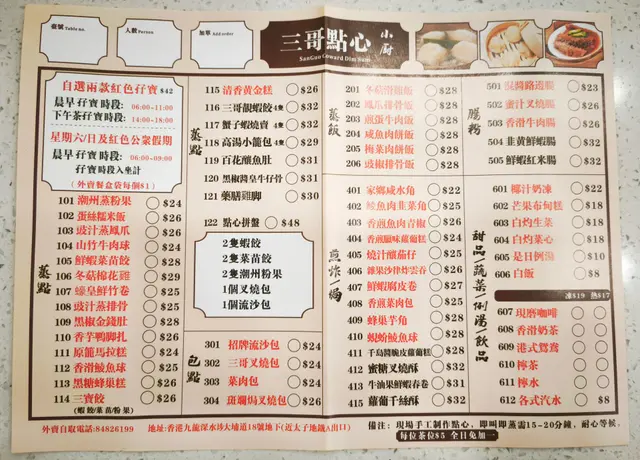 臺號 Table no.
人數 Person
加單 Add order
三哥點心 小廚
SanGao Coward Dim Sum
自選兩款紅色孖寶 $42
晨早孖寶時段: 06:00-11:00
下午茶孖寶時段: 14:00-18:00
星期六/日及紅色公衆假期
晨早孖寶時段: 06:00-09:00
孖寶時段入坐計
(外賣餐盒袋每個$1)
蒸點
101 潮州蒸粉果 $24
102 蛋絲糯米飯 $26
103 豉汁蒸鳳爪 $26
104 山竹牛肉球 $24
105 鮮蝦菜苗餃 $28
106 冬菇棉花雞 $29
107 蠔皇鮮竹卷 $25
108 豉汁蒸排骨 $25
109 黑椒金錢肚 $28
110 香芋鴨脚扎 $26
111 原籠馬拉糕 $24
112 香滑鯪魚球 $25
113 黑糖蜂巢糕 $26
114 三寶餃 $26
(蝦餃/菜苗/粉果)
蒸點
115 清香黄金糕 $26
116 三哥靚蝦餃 4隻 $32
117 蟹子蝦燒賣 4隻 $32
118 高湯小籠包 4隻 $29
119 百花釀魚肚 $31
120 黑椒醬皇牛仔骨 $31
121 藥膳雞脚 $30
122 點心拼盤 $48
2隻蝦餃
2隻菜苗餃
2隻潮州粉果
1個叉燒包
1個流沙包
包點
301 招牌流沙包 $24
302 三哥叉燒包 $24
303 菜肉包 $24
304 斑斕焗叉燒包 $26
蒸飯
201 冬菇滑雞飯 $28
202 鳳爪排骨飯 $28
203 煎蛋牛肉飯 $28
204 咸魚肉餅飯 $28
205 梅菜肉餅飯 $28
206 豉椒排骨飯 $28
煎炸/焗
401 家鄉咸水角 $22
402 鯪魚肉韭菜角 $25
403 香煎魚肉青椒 $26
404 香煎臘味蘿蔔糕 $26
405 燒汁釀茄仔 $25
406 雜果沙律炸雲吞 $26
407 鮮蝦腐皮卷 $27
408 香煎菜肉包 $25
409 蜂巢芋角 $28
410 蜆蚧鯪魚球 $28
411 千島醬脆皮蘿蔔糕 $28
412 蜜糖叉燒酥 $32
413 牛油果鮮蝦春卷 $31
415 蘿蔔千絲酥 $32
腸粉
501 $23
502 蜜汁叉燒腸 $26
503 香滑牛肉腸 $26
504 韭黄鮮蝦腸 $28
505 鮮蝦紅米腸 $32
甜品/蔬菜/例湯/飲品
601 椰汁奶凍 $22
602 芒果布甸糕 $22
603 白灼生菜 $18
604 白灼菜心 $18
605 是日例湯 $10
606 白飯 $8
凍$19 熱$17
607 現磨咖啡
608 香滑奶茶
609 港式鴛鴦
610 檸茶
611 檸水
612 各式汽水 $8
外賣自取電話:84826199 地址:香港九龍深水埗大埔道18號地下(近太子地鐵A出口)
備注: 現場手工制作點心，即叫即蒸需15-20分鐘，耐心等候。
每位茶位$5 全日免加一